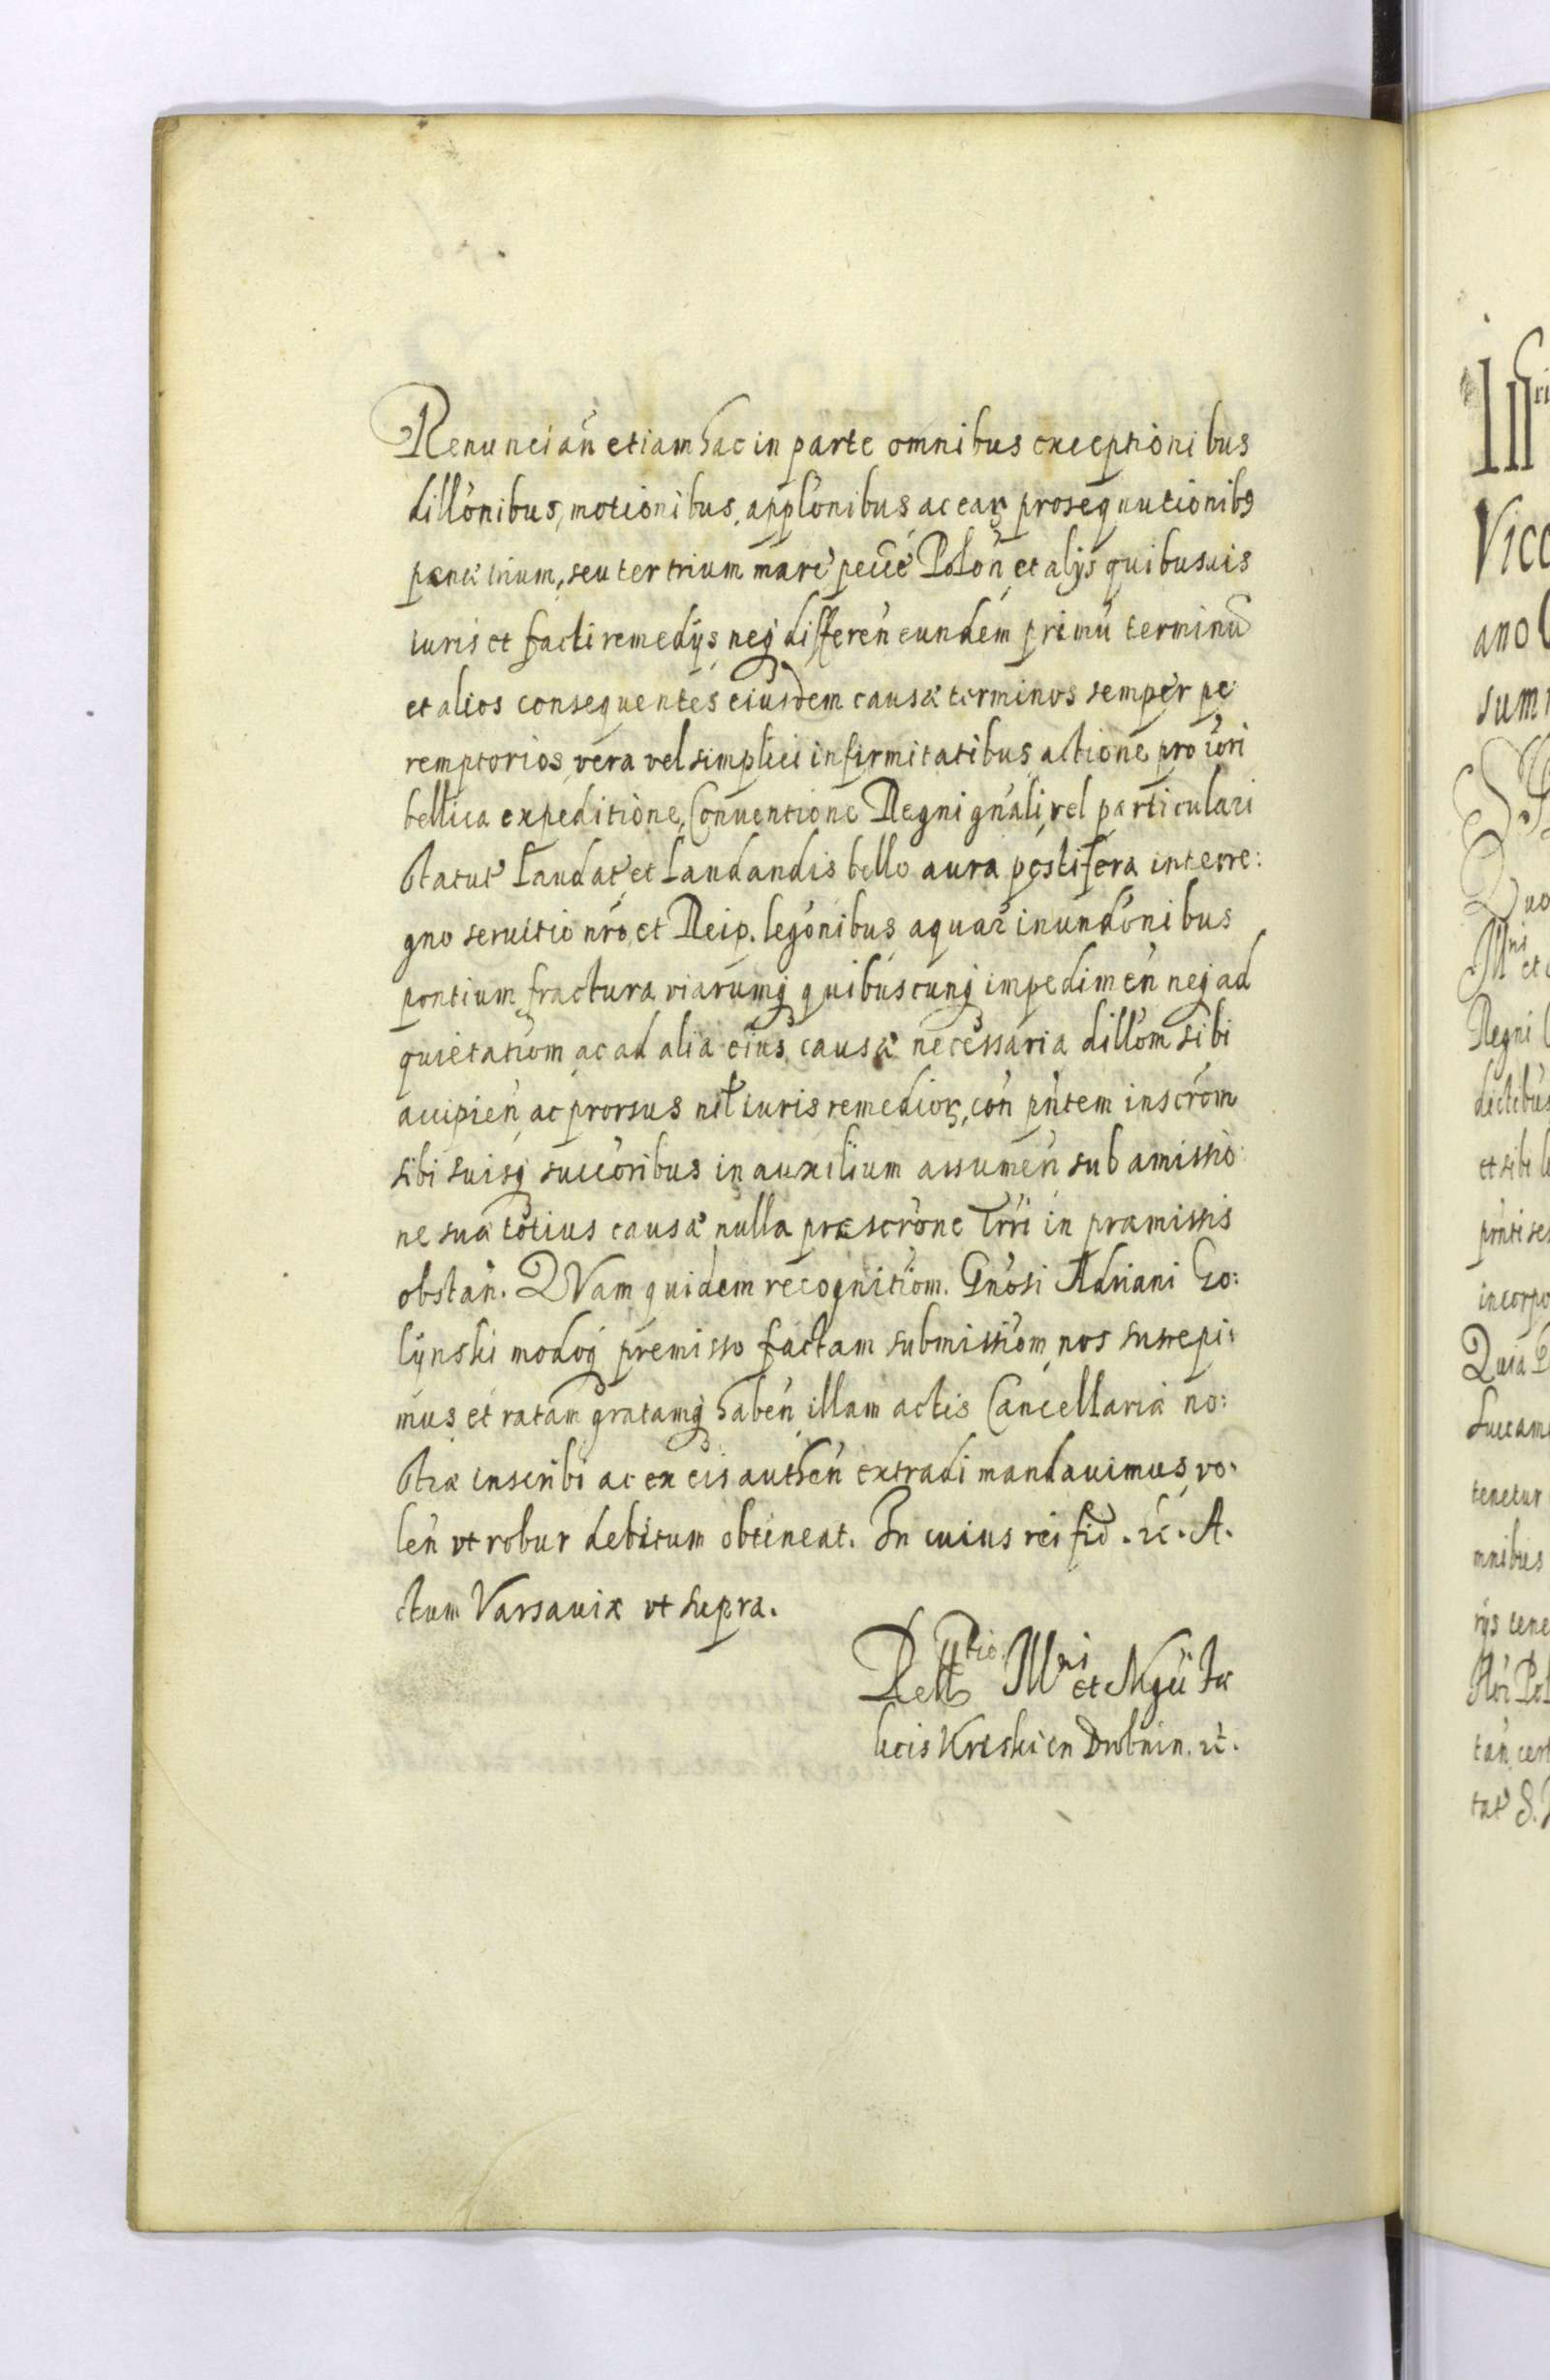 Renuncian̄ etiam hac in parte omnibus exceptionibus
dillōnibus, motionibus, applōnibus ac earꝫ prosequutionibꝯ
pœnæ trium, seu ter trium marc̄ pecc̄e Polon̄ et alijs quibusuis
iuris et facti remedijs neq̨ differen̄ eundem primū terminū
et alios consequentes eiusdem causæ terminos semper pe
remptorios, vera vel simplici infirmitatibus actione pro īōri
bellica expeditione, Conuentione Regni gn̄ali, vel particulari
statut' laudat' et laudandis bello aura pestifera interre:
gno seruitio nr̄o et Reip. legōnibus aquar̄ inundōnibus
pontium fractura viarumq̨ quibuscunq̨ impedimen̄ neq̨ ad
quietatiōm ac ad alia eius causæ necessaria dillōm sibi
accipien̄ ac prorsus nil iuris remediorꝫ, con̄ pn̄tem inscrōm
sibi suisq̨ succōribus in auxilium assumen̄ sub amissio
ne suæ totius causæ nulla præscrōne trr̄i in præmissis
obstan̄. QVam quidem recognitiōm. Gn̄osi Adriani Go:
lÿnski modoq̨ premisso factam submissiōm nos suscepi:
mus et ratam gratamq̨ haben̄ illam actis Cancellariæ no:
stræ inscribi ac ex eis authen̄ extradi mandauimus, vo:
len̄ vt robur debitum obtineat. In cuius rei fid. ꝛc. A.
ctum Varsauiæ vt supra.
Relltio Mni et Ngii Fæ
licis Kriski in Drobnin. ꝛc.
Vice
ano
sum
Quo
Mni et
Regni
et sibi
incorpo
Quia
tenetur
mnibus